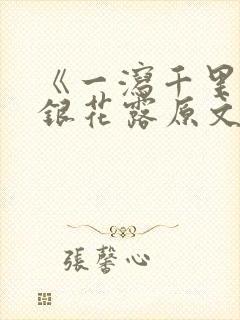 《一瀉千里
銀花露原文
張馨心